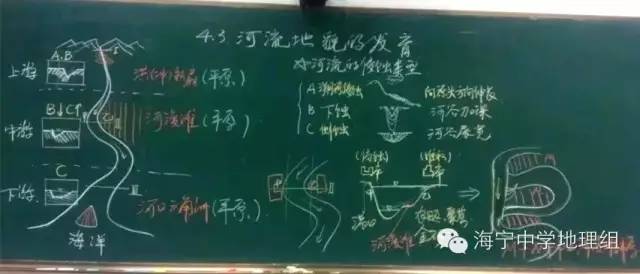 4.3 河流地貌的发育
河流的侵蚀类型
A.B
上游
洪(冲)积扇(平原)
A 溯源侵蚀
向源头方向伸长
B 下蚀
河谷加深
C 侧蚀
河谷展宽
B↓C↑
中游
河漫滩(平原)
C
下游
河口三角洲(平原)
海洋
(侵蚀)
(堆积)
凹岸
凸岸
港口
河漫滩
农田 聚落
海宁中学地理组